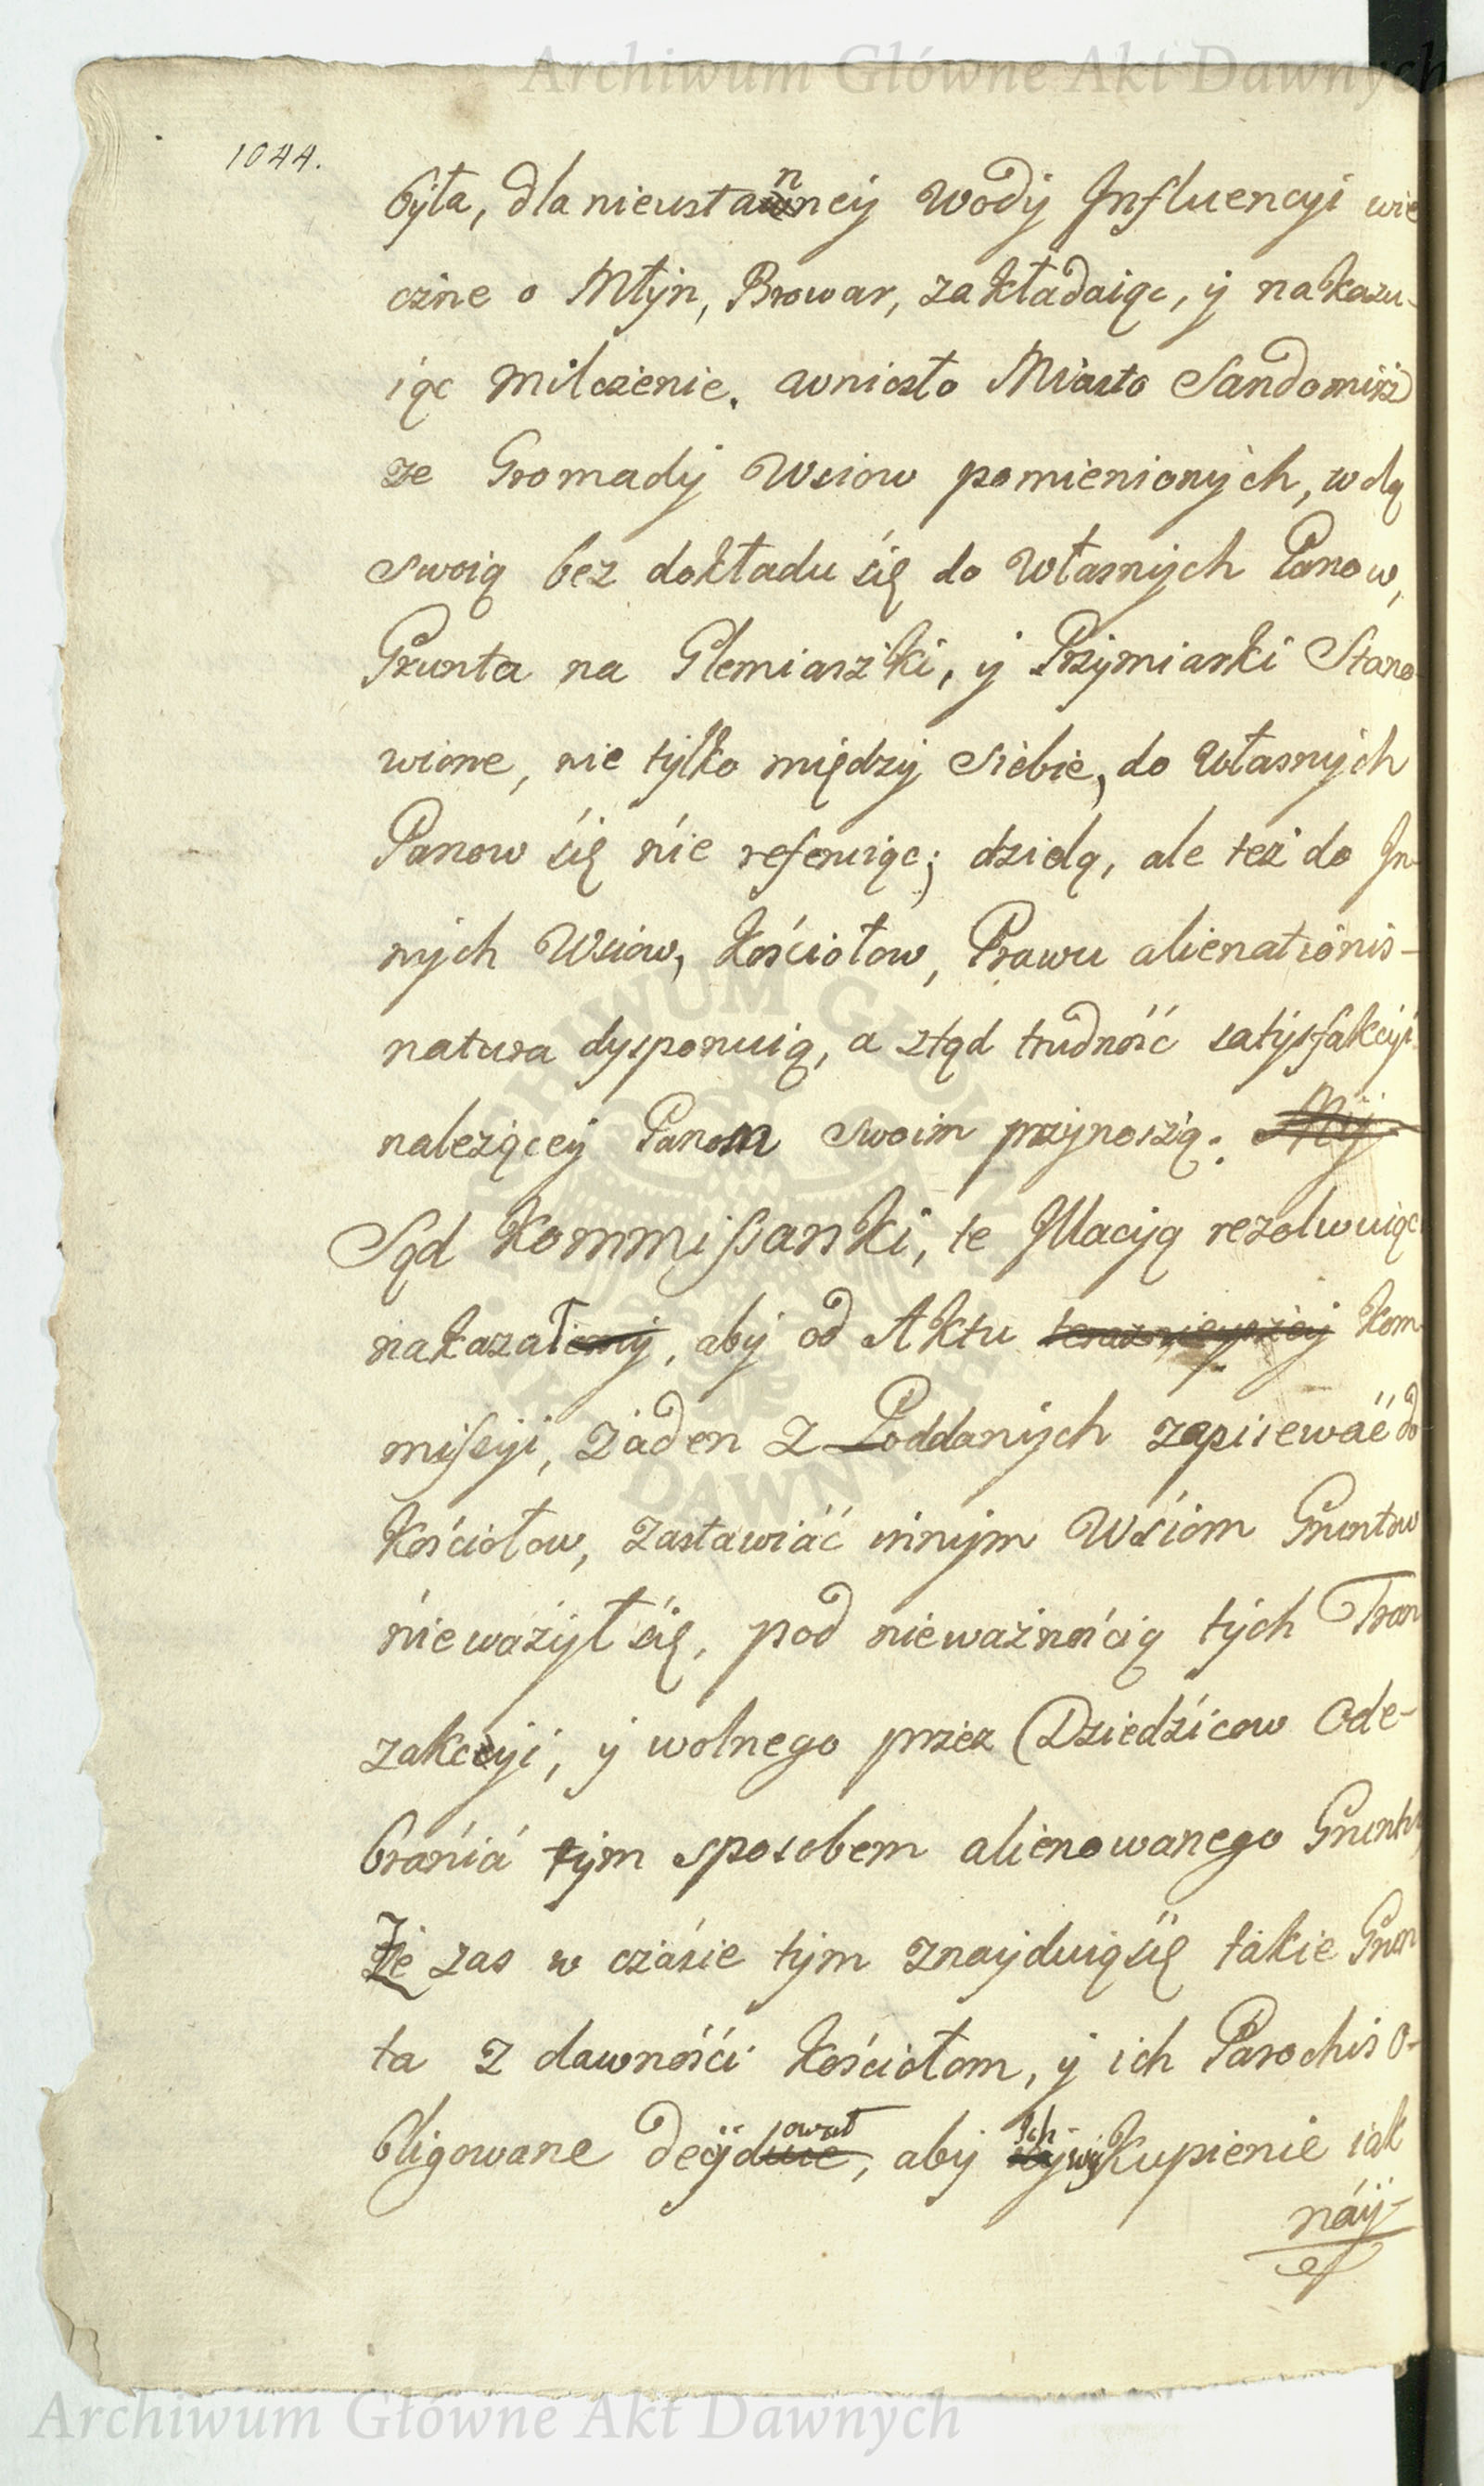 Archiwum Główne Akt Dawnych
1044.
była, dla nieustanney Wody Influencyi wie
czne o Młyn, Browar, zakładaiąc, y nakazu-
iąc milczenie. wniosło Miasto Sandomirz
ze Gromady Wsiow pomienionych, wolą
swoią bez dokładu się do Własnych Panow,
Grunta na Płemiaszki, y Przymiarki Stano
wione, nie tylko między siebie, do Własnych
Panow się nie referuiąc; dzielą, ale też do In-
nych Wsiow, Kościołow, Prawu alienationis-
natura dysponuią, a ztąd trudność satysfakcyi
należącey Panom swoim przynoszą. My
Sąd Kommissarski, te Illacyą rezolwuiąc
nakazałemy, aby od Aktu teraznieyszey Kom
missyi, żaden z Poddanych zapisewać do
Kościołow, zastawiać innym Wsiom Gruntow
nieważył się, pod nieważnością tych Tran
zakcyi, y wolnego przez Dziedzicow Ode-
brania tym sposobem alienowanego Gruntu,
Że zas w czasie tym znayduią się takie Grun
ta z dawności Kościołom, y ich Parochis o-
bligowane decyduie
ował
, aby
Ich
wykupienie iak
náy-
ARCHIWUM GŁÓWNE AKT DAWNYCH
Archiwum Główne Akt Dawnych